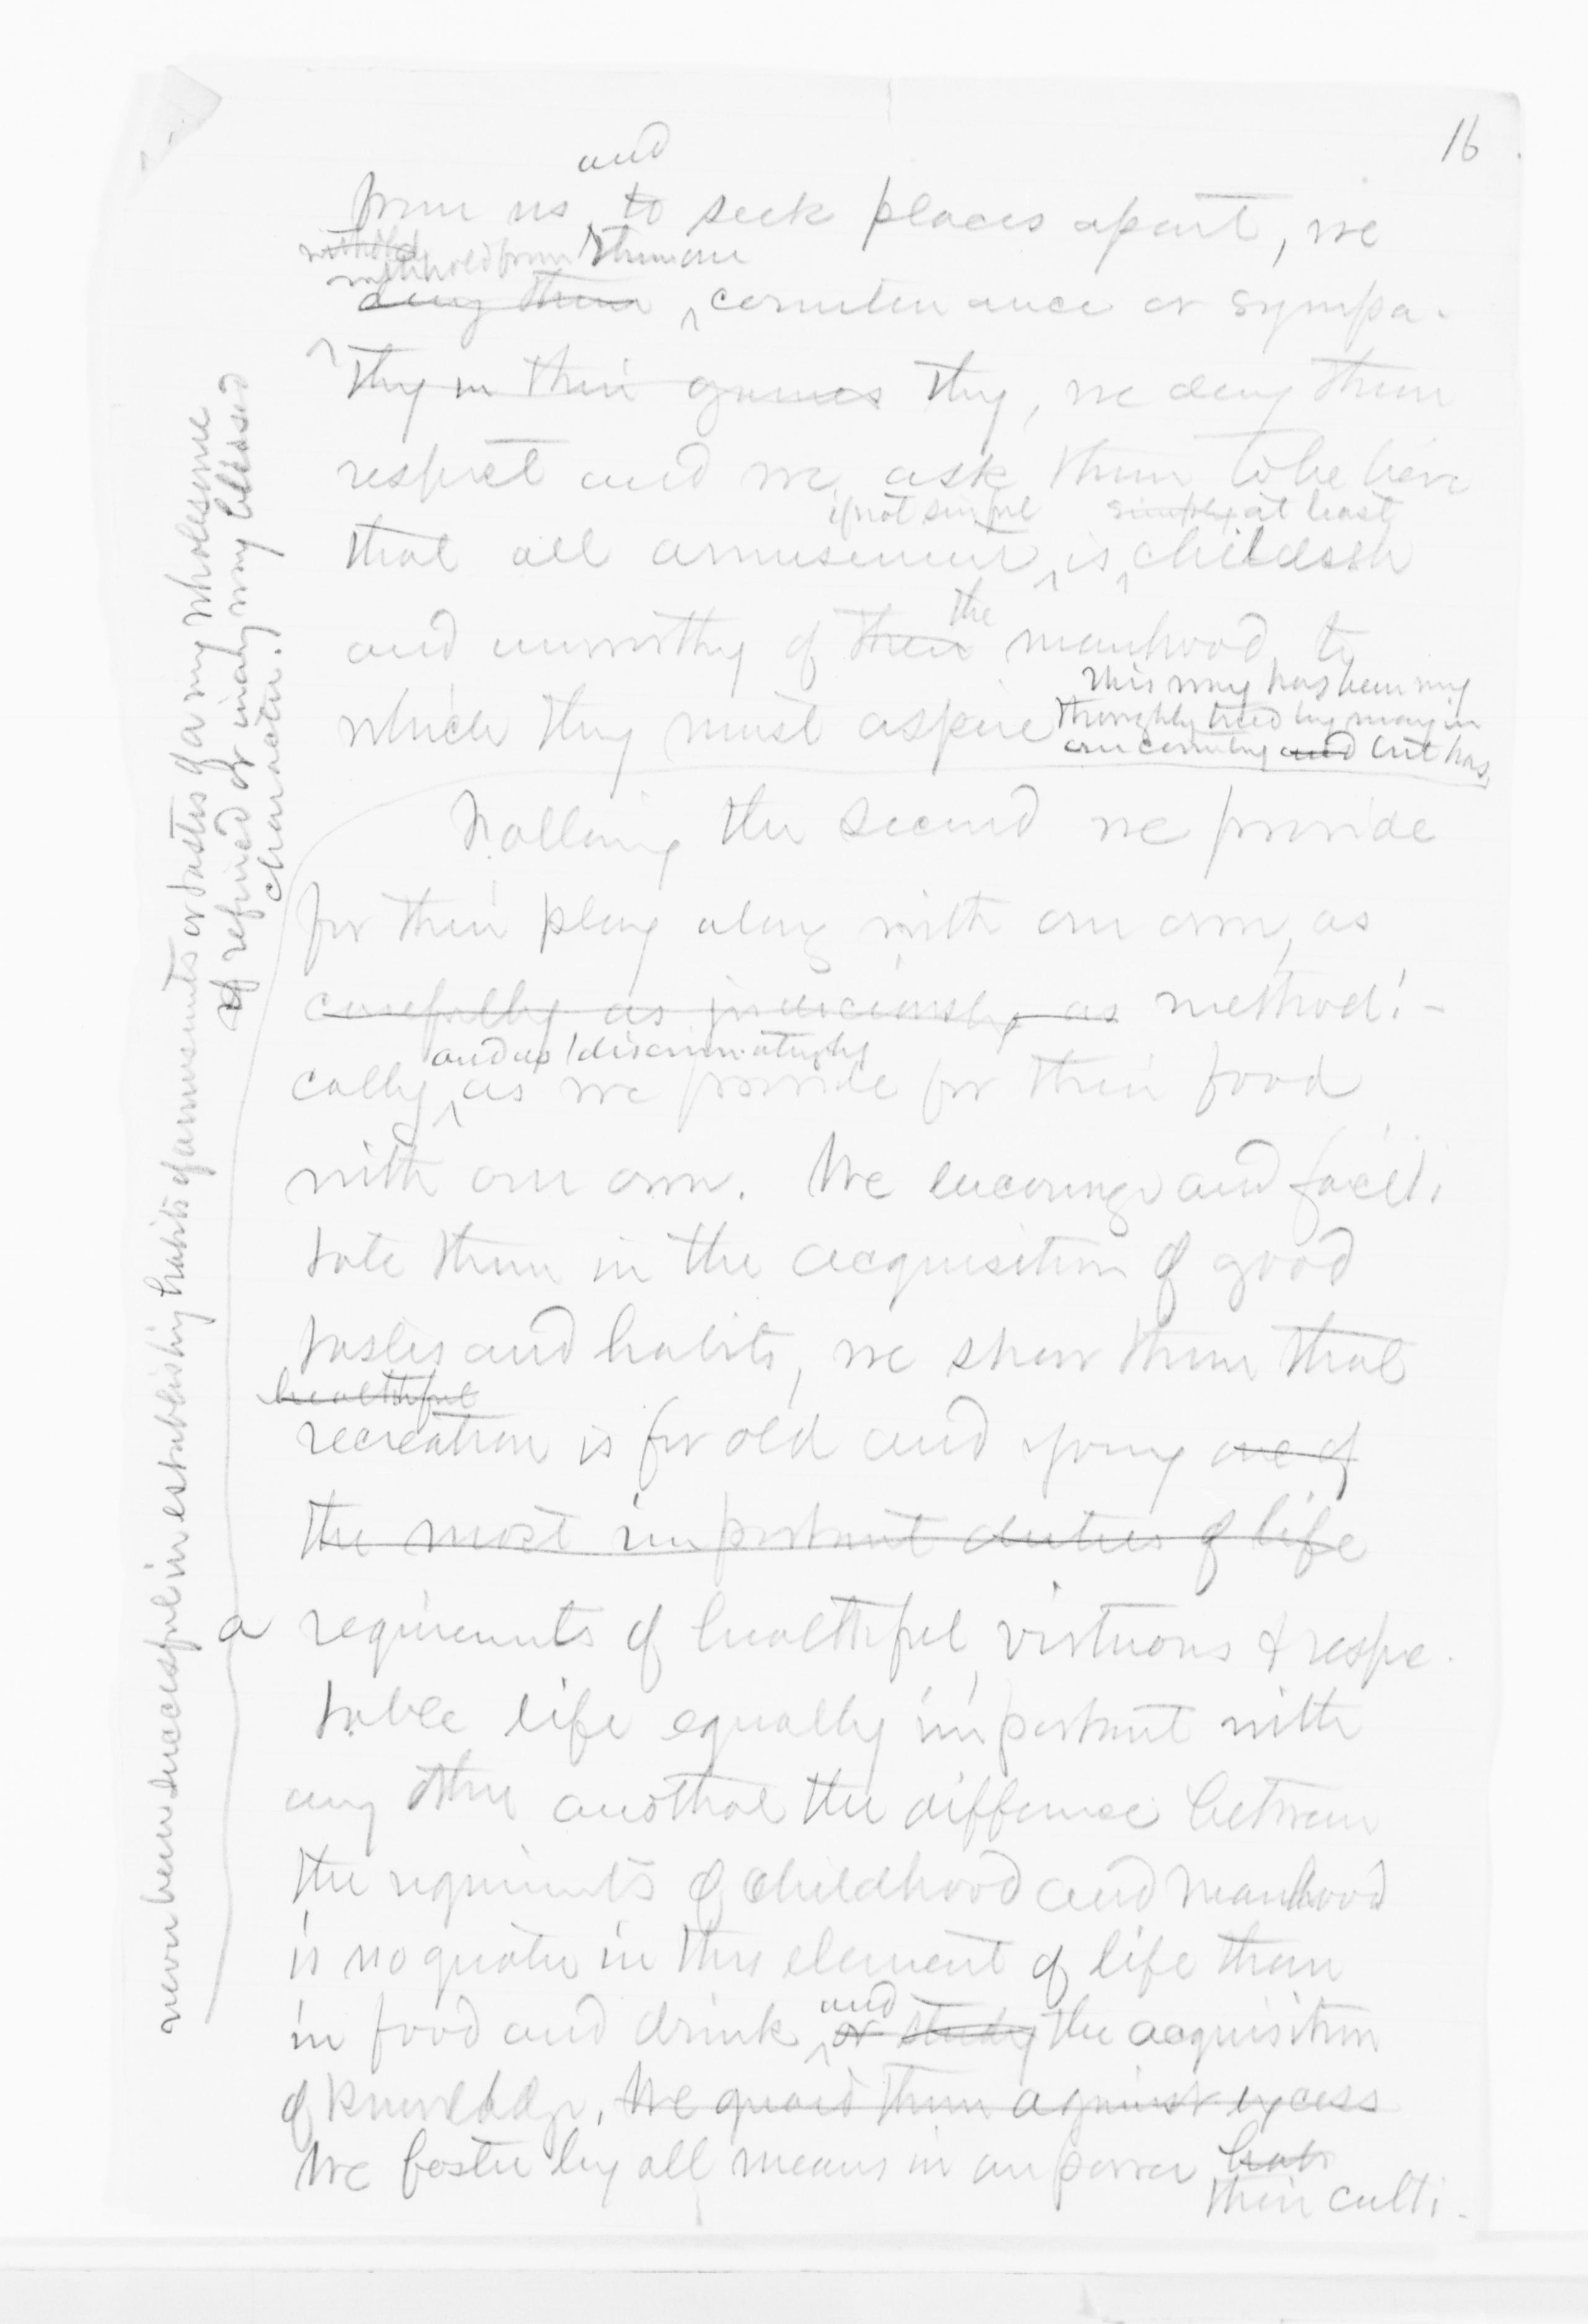 16
and
from us, to seek places apart, we
withhold
withhold from them our
deny them countenance or sympa-
thy in their games thy, we deny them
respect and we ask them to believe
if not sinful simply at least
that all amusement is childish
the
and unworthy of their manhood to
which they must aspire
This way has been very
thoroughly tried by many in
our country and but has
never been successful in establishing habits of amusements or tastes of a very wholesome
of refined or in any way blessed
character.
Following the second we provide
for their play along with our own, as
carefully as judiciously as methodi-
and as discriminatingly
cally as we provide for their food
with our own. We encourage and facili
tate them in the acquisition of good
tastes and habits, we show them that
healthful
recreation is for old and young one of
the most important duties of life
a requirements of healthful, virtuous & respec-
table life equally important with
any other and that the difference between
the requirements of childhood and manhood
is no greater in this element of life than
and
in food and drink or study the acquisition
of knowledge. We guard them against excess
We foster by all means in our power hab
their culti-